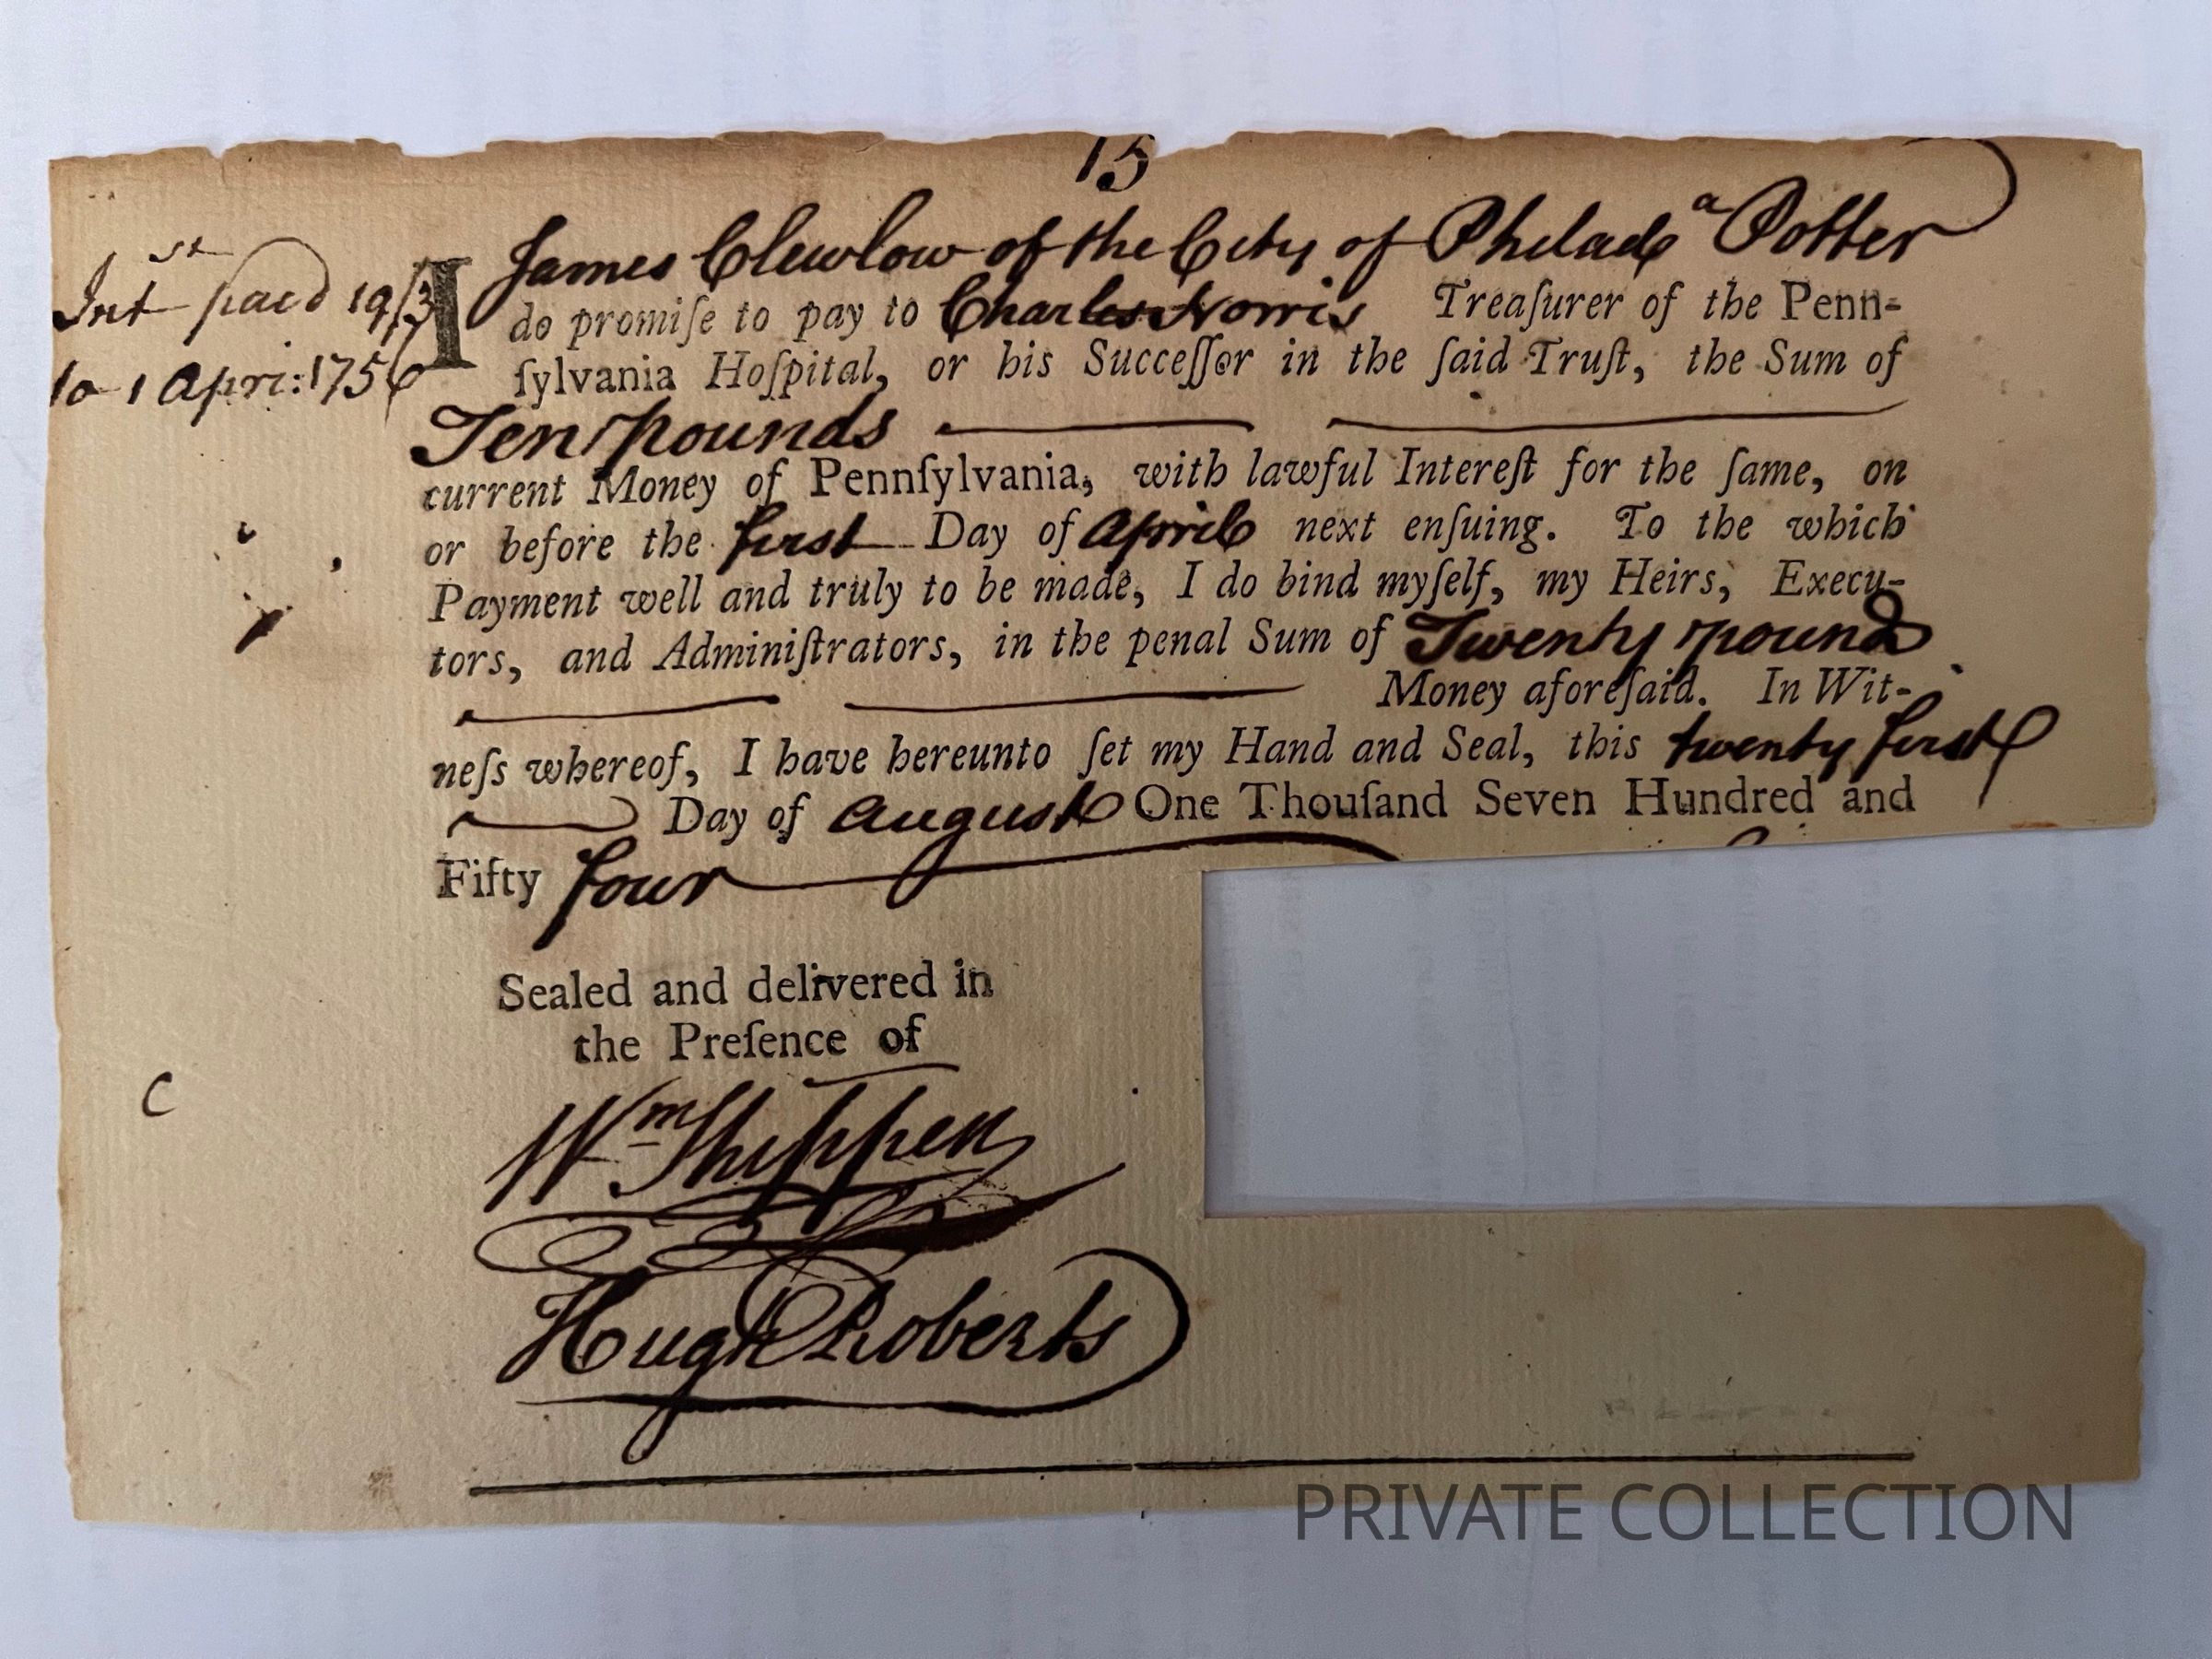 15
I James Clewlow of the City of Philad^a Potter
Int^st paid 19/3
do promiſe to pay to Charles Norris Treaſurer of the Penn-
to 1 Apri: 1756
ſylvania Hoſpital, or his Succeſſor in the ſaid Truſt, the Sum of
Ten pounds
current Money of Pennſylvania, with lawful Intereſt for the ſame, on
or before the first Day of April next enſuing. To the which
Payment well and truly to be made, I do bind myſelf, my Heirs, Execu-
tors, and Adminiſtrators, in the penal Sum of Twenty pounds
Money aforeſaid. In Wit-
neſs whereof, I have hereunto ſet my Hand and Seal, this twenty first
Day of August One Thouſand Seven Hundred and
Fifty four
Sealed and delivered in
the Preſence of
C
W^m Shippen
Hugh Roberts
PRIVATE COLLECTION